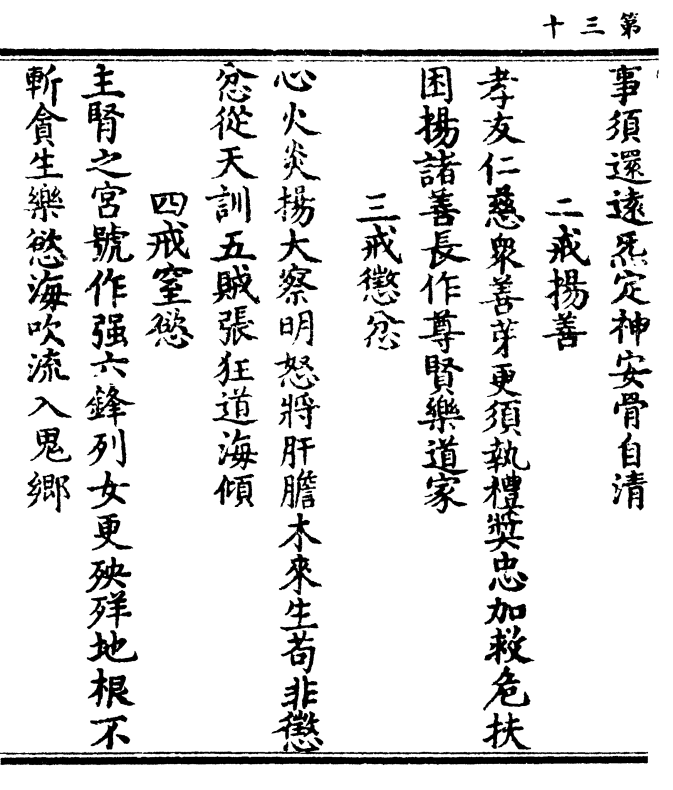 第三十
事須還遠炁定神安骨自清
二戒揚善
孝友仁慈衆善芽更須執禮奬忠加救危扶
困揚諸善長作尊賢樂道家
三戒懲忿
心火炎揚大察明怒將肝膽木來生苟非懲
忿從天訓五賊張狂道海傾
四戒窒慾
主腎之宮號作强六鋒列女更殃殍地根不
斬貪生樂慾海吹流入鬼鄉